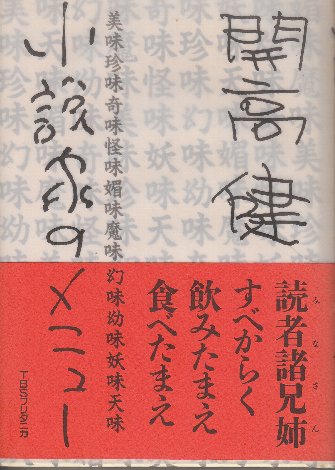 開高健
美味珍味奇味怪味媚味魔味
幻味幼味妖味天味
小説家のメニュー
読者諸兄姉
みなさん
すべからく
飲みたまえ
食べたまえ
TBSブリタニカ